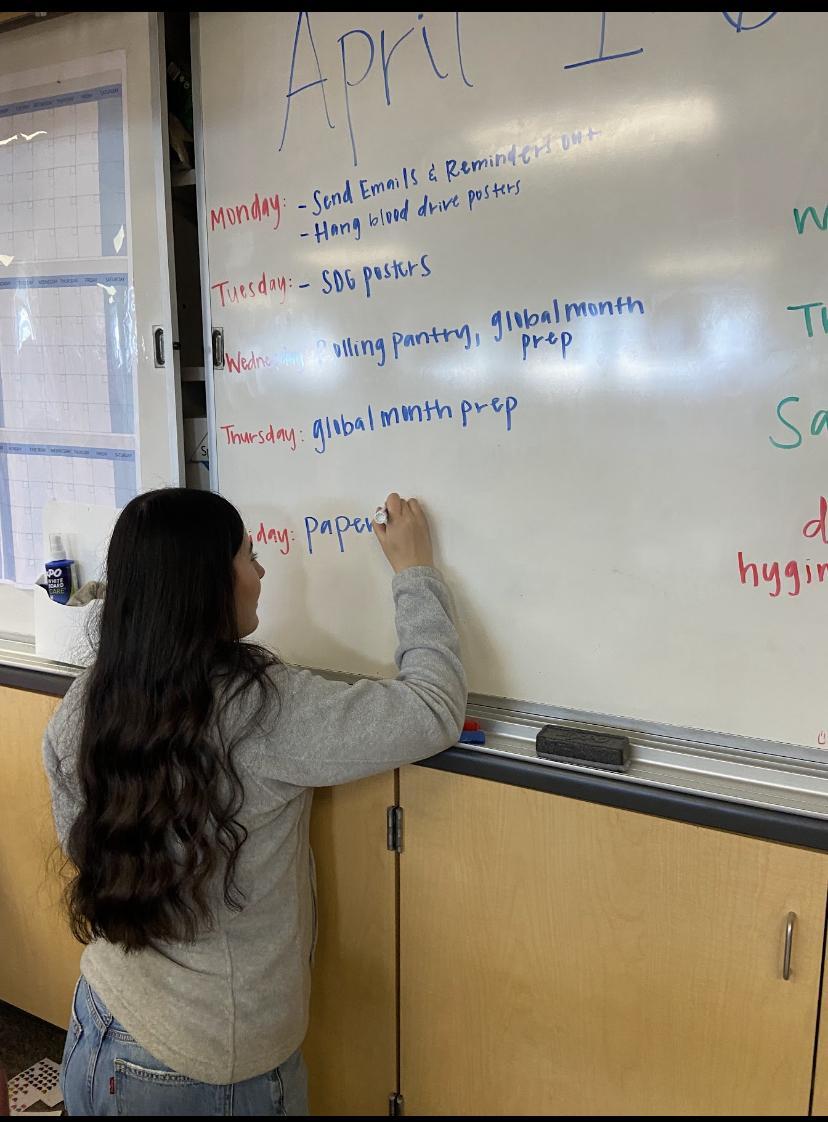 April 1
Monday: - Send Emails & Reminders out
- Hang blood drive posters
Tuesday: - SDG posters
Rolling pantry, global month
prep
Thursday: global month prep
iday: paper
Sa
hygin
WHITE
BOARD
CARE